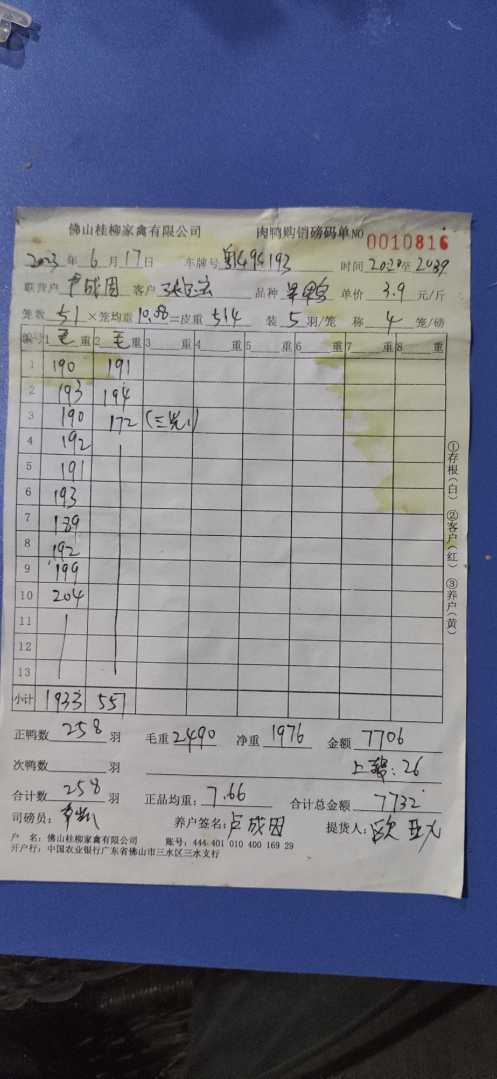 佛山桂柳家禽有限公司 肉鸭购销磅码单 NO 0010816
2023年 6月 17日 车牌号 时间 2020至 2039
联营户 卢成因 客户 品种 单价 3.9 元/斤
笼数 51 ×笼均重 10.08 =皮重 514 装 5 羽/笼 称 4 笼/磅
编号 1 毛 重 2 毛 重 3 重 4 重 5 重 6 重 7 重 8 重
1 190 191
2 193 194
3 190 172
4 192
5 191
6 193
7 189
8 192
9 199
10 204
11
12
13
小计 1933 557
正鸭数 258 羽 毛重 2490 净重 1976 金额 7706
次鸭数 羽 26
合计数 258 羽 正品均重: 7.66 合计总金额 7732
司磅员: 养户签名: 卢成因 提货人: 欧
户 名: 佛山桂柳家禽有限公司 账号: 444 401 010 400 169 29
开户行: 中国农业银行广东省佛山市三水区三水支行
①存根(白) ②客户(红) ③养户(黄)